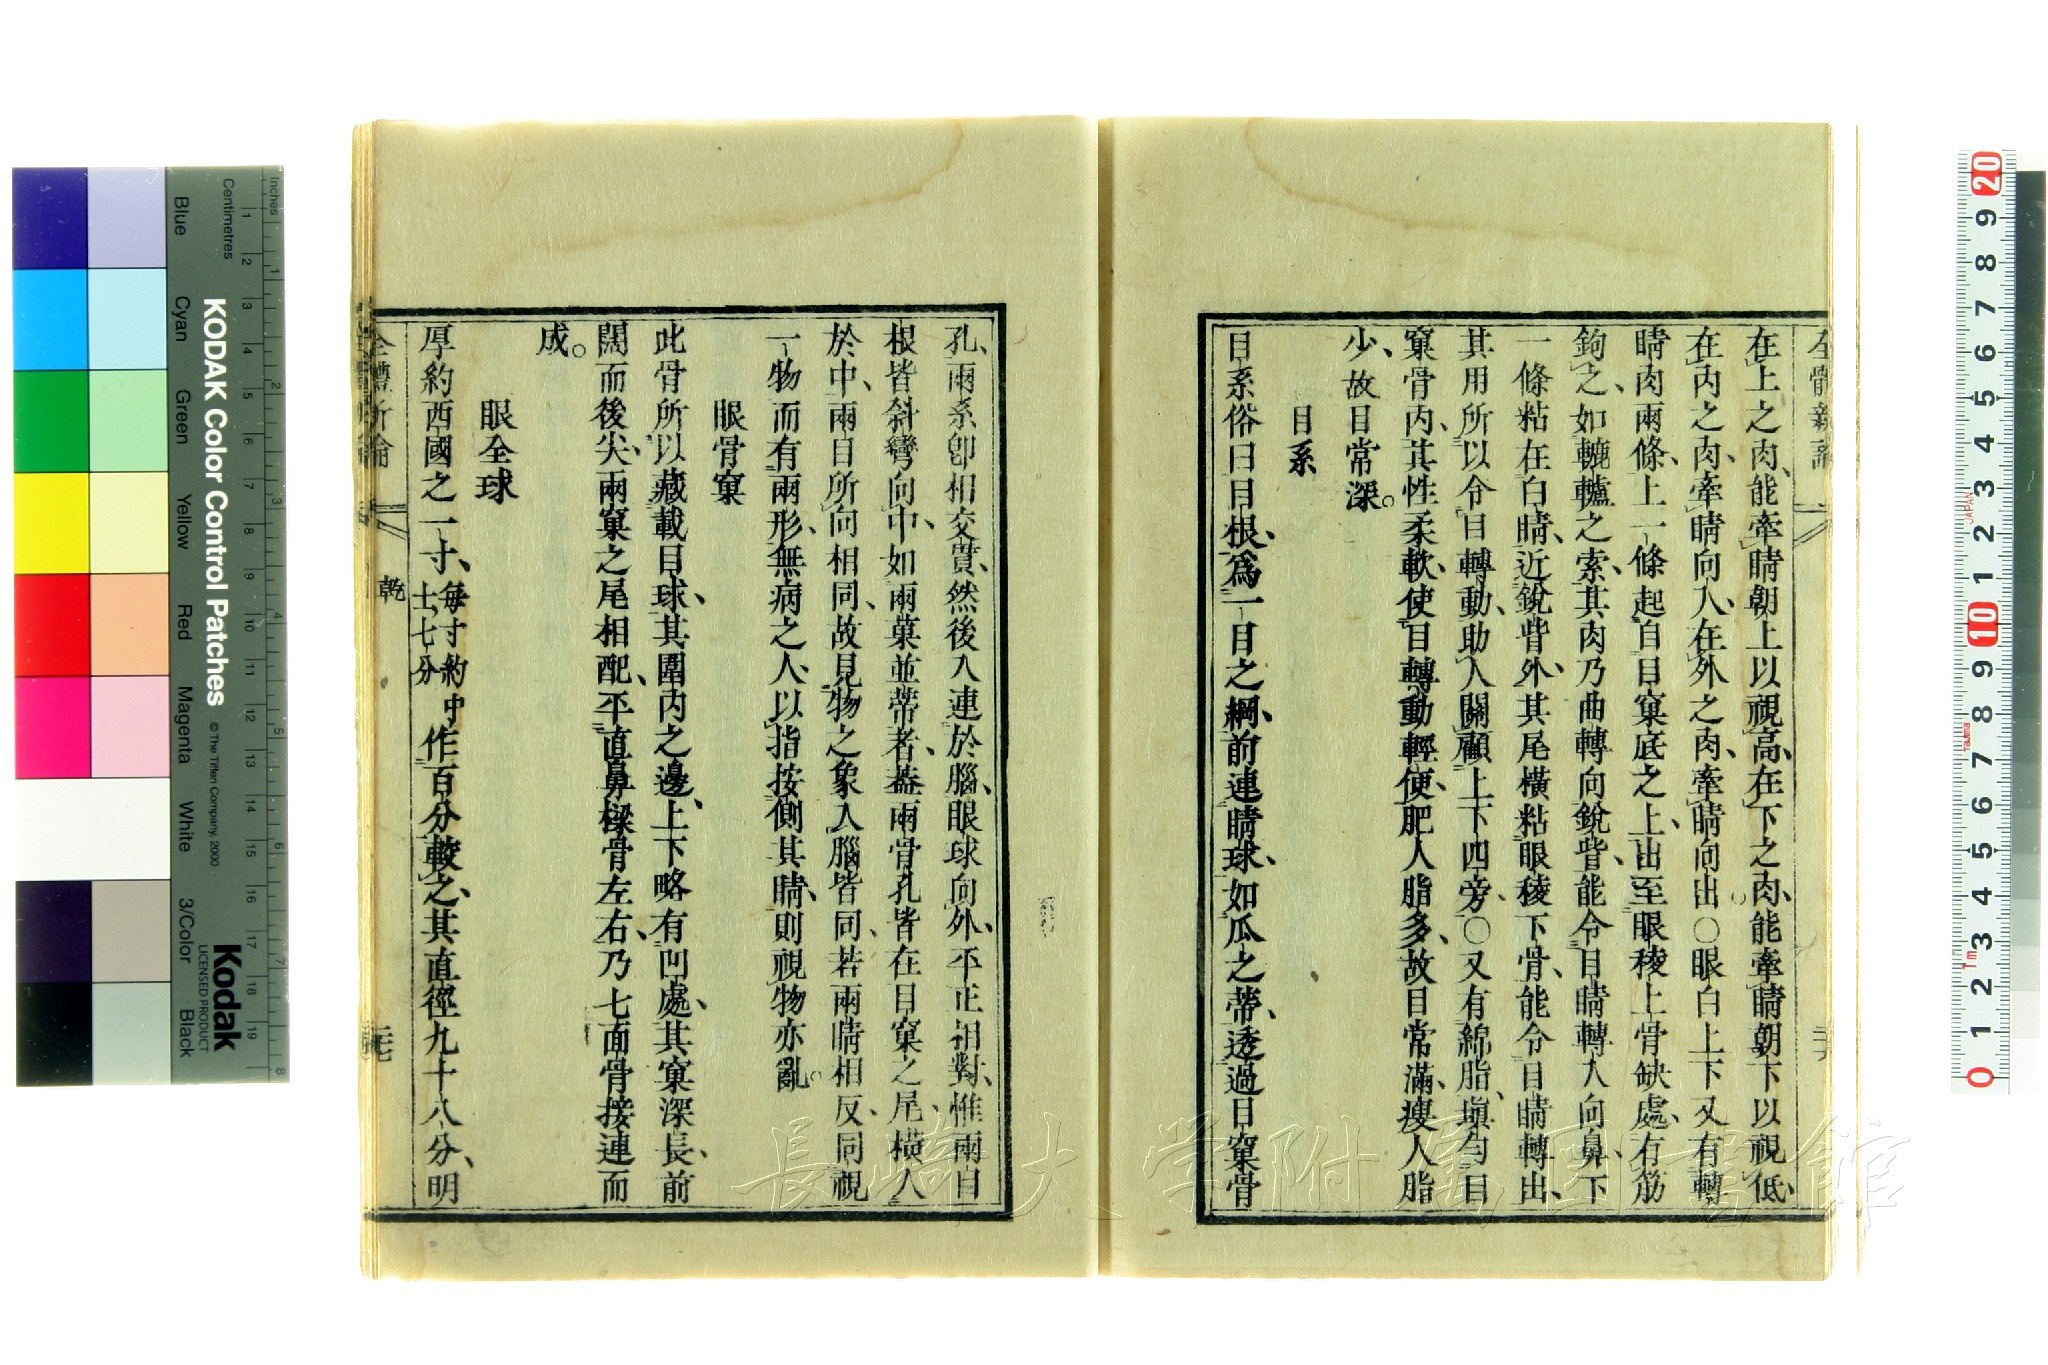 全體新論
在上之肉、能牽睛朝上以視高、在下之肉、能牽睛朝下以視低、
在內之肉、牽睛向入、在外之肉、牽睛向出○眼白上下又有轉
睛肉兩條、上一條起自目窠底之上、出至眼稜上骨缺處、有筋
鉤之、如轆轤之索、其肉乃曲轉向銳眥、能令目睛轉入向鼻、下
一條粘在白睛、近銳眥外、其尾橫粘眼稜下骨、能令目睛轉出、
其用所以令目轉動、助人關顧上下四旁、○又有綿脂、塡勻目
窠骨內、其性柔軟、使目轉動輕便、肥人脂多、故目常滿、瘦人脂
少、故目常深。
目系
目系俗曰目根、爲一目之綱、前連睛球、如瓜之蒂、透過目窠骨
孔、兩系卽相交貫、然後入連於腦、眼球向外、平正相對、惟兩目
根皆斜彎向中、如兩菓並蒂者、蓋兩骨孔皆在目窠之尾、橫入
於中、兩目所向相同、故見物之象入腦皆同、若兩睛相反、同視
一物而有兩形、無病之人、以指按側其睛、則視物亦亂。
眼骨窠
此骨所以藏載目球、其圍內之邊、上下略有凹處、其窠深長、前
闊而後尖、兩窠之尾相配、平直鼻樑骨左右、乃七面骨接連而
成。
眼全球
厚約西國之一寸、每寸約中
士七分
作百分較之、其直徑九十八分、明
乾
長崎大学附属図書館
KODAK Color Control Patches
© The Tiffen Company, 2000
Kodak
LICENSED PRODUCT
Inches
Centimetres
Blue
Cyan
Green
Yellow
Red
Magenta
White
3/Color
Black
JAPAN
Tajima
1m